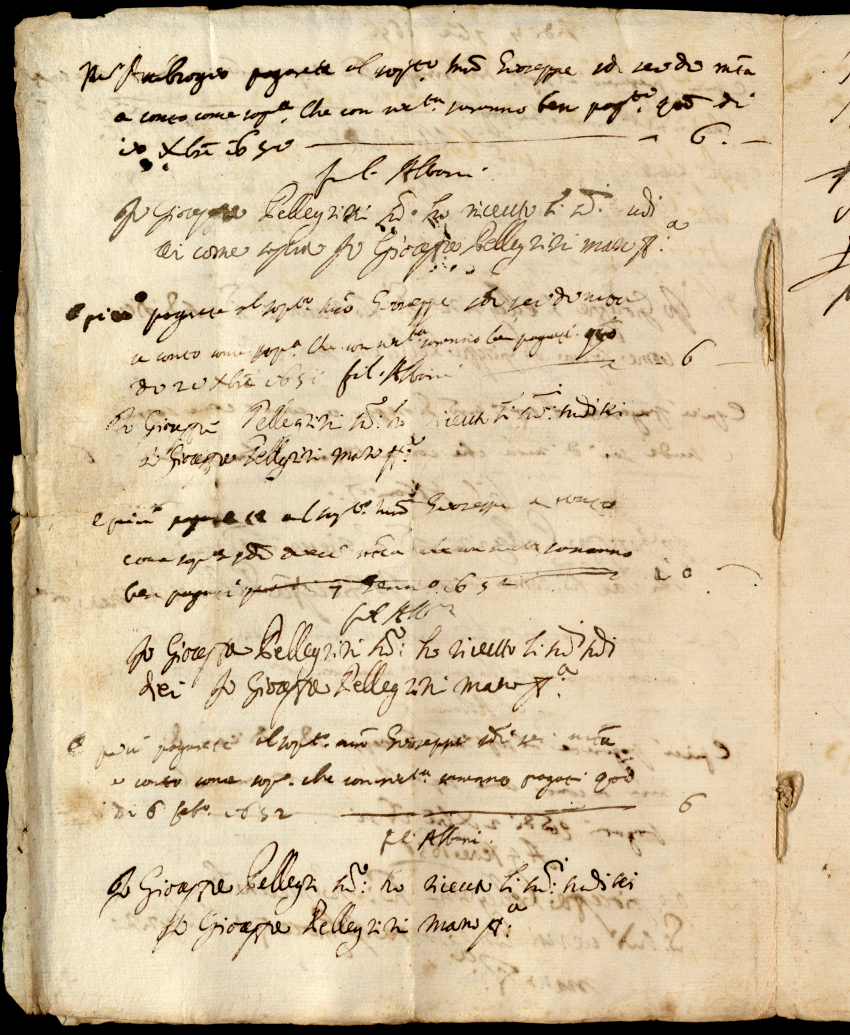 Ambrogio pagarete al sopto mro Gioseppe sdi sei di mta
a conto come sopa. Che con ricta saranno ben pagti. qdo di
Xbre 1650 6.
fil. Albani
Io Gioseppe Pellegrini sdo: ho riceuto li sdi. sudi
sei come sopra Io Gioseppe Pellegrini mano pa
e più pagarete al sopto mro Gioseppe sdi sei di mta
a conto come sopa. Che con ricta saranno ben pagati qdo
di 20 Xbre 1651 fil. Albani 6
Io Gioseppe Pellegrini sdo: ho riceuto li sdi: sudi sei
Io Gioseppe Pellegrini mano pa
e più pagarete al sopto mro Gioseppe a conto
come sopa sdi dieci mta che con ricta saranno
ben pagati 7 Genno 1652 10
fil Alb
Io Gioseppe Pellegrini sdo: ho riceuto li sdi sudi
diei Io Gioseppe Pellegrini mano pa
e più pagarete al sopto mro Gioseppe sdi sei mta
a conto come sopa. che con ricta saranno pagati qdo
di 6 febo 1652 6
fil Albani
Io Gioseppe Pellegri sdo: ho riceuto li sdi: sudi sei
Io Gioseppe Pellegrini mano pa